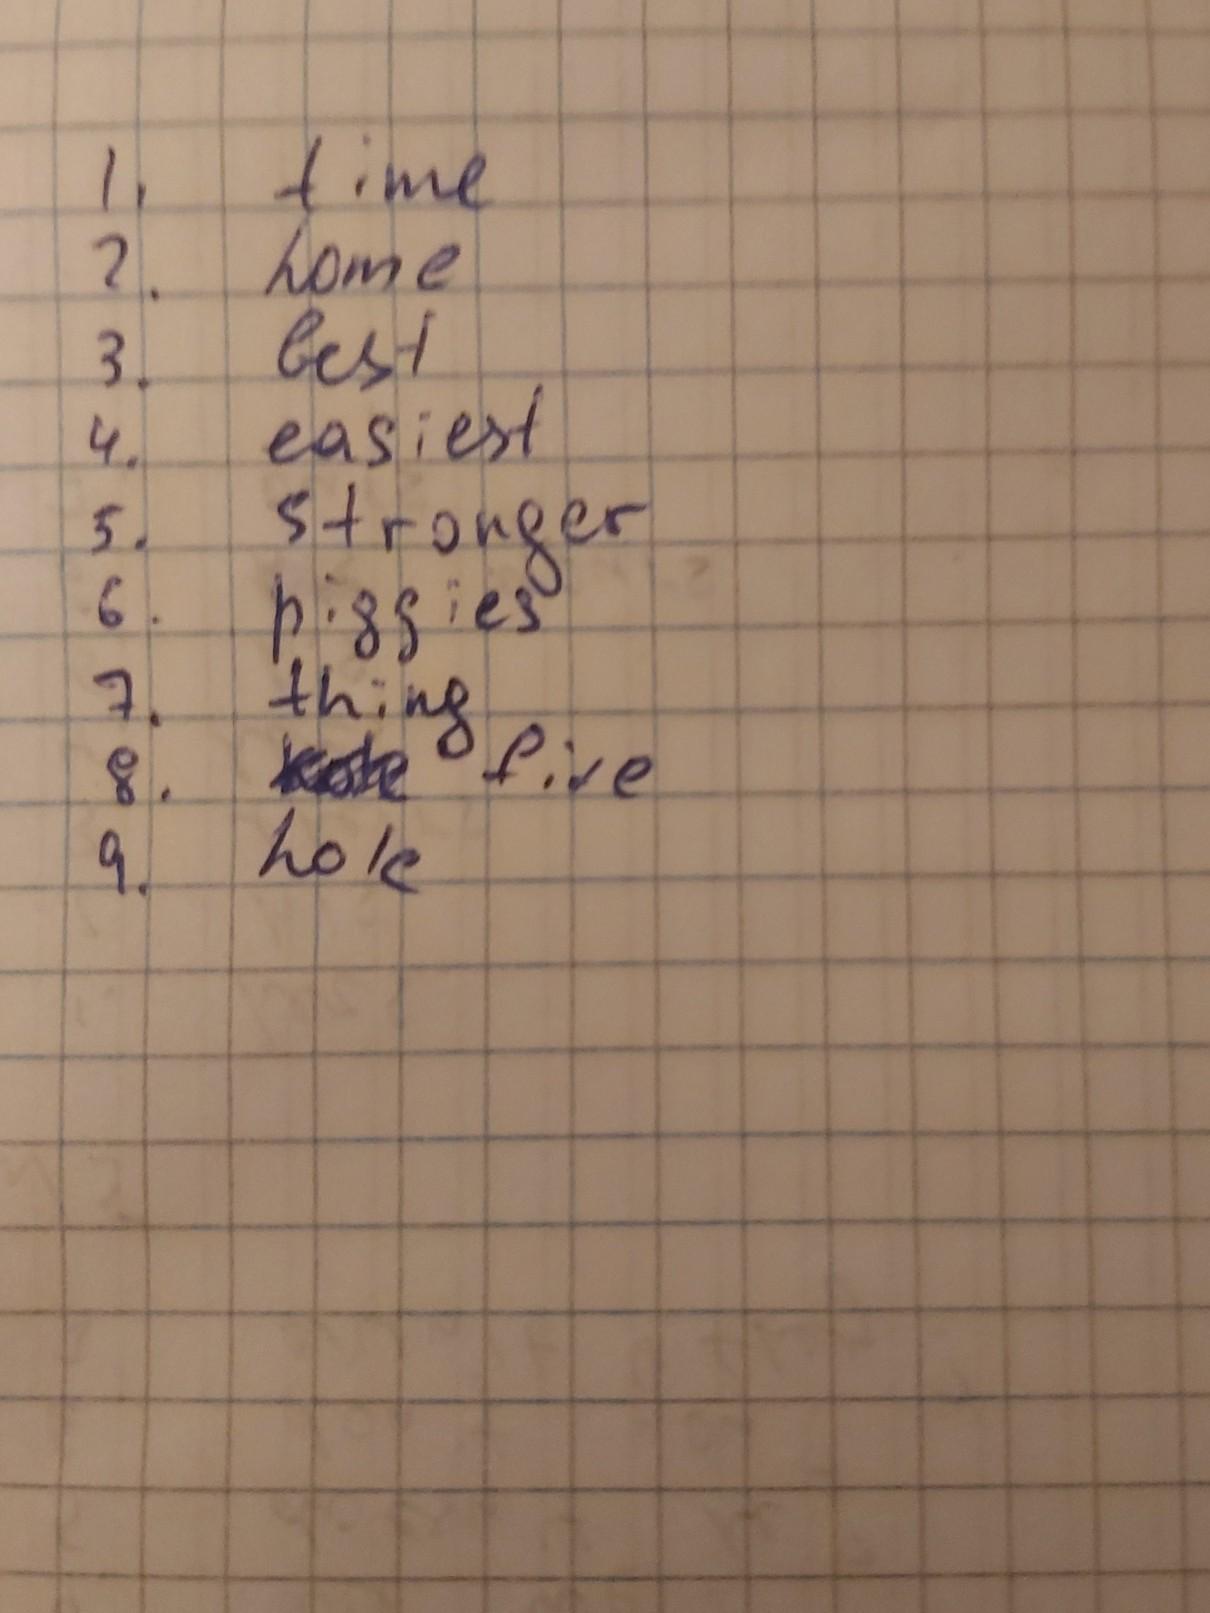 1. time
2. home
3. best
4. easiest
5. stronger
6. piggies
7. thing
8. fire
9. hole